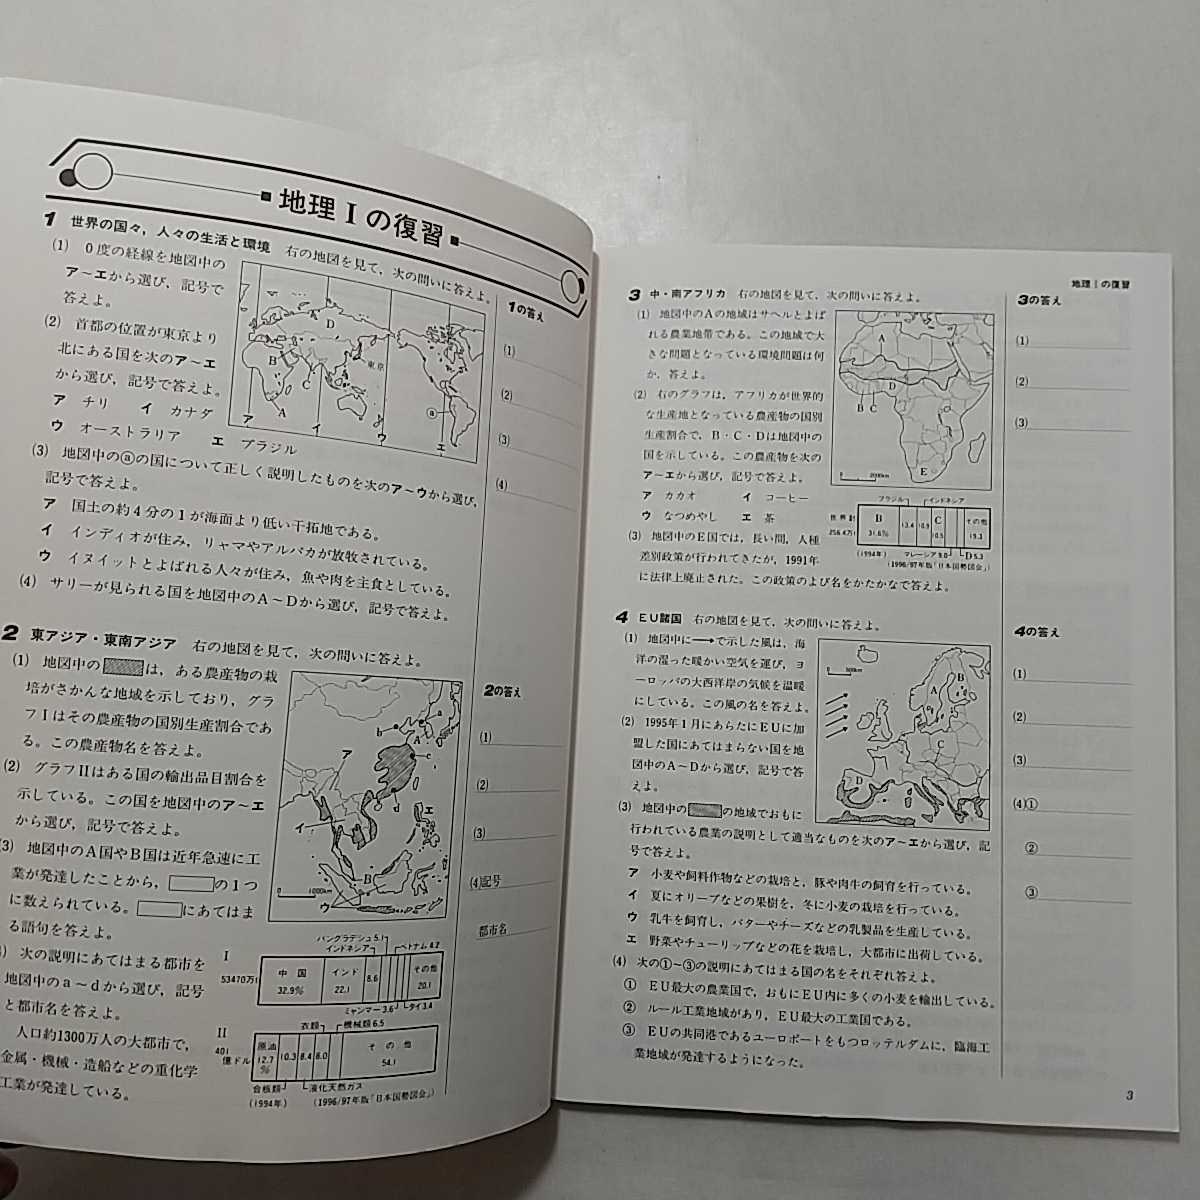 地理Ⅰの復習
1 世界の国々，人々の生活と環境 右の地図を見て，次の問いに答えよ。
(1) 0度の経線を地図中の
ア～エから選び，記号で
答えよ。
(2) 首都の位置が東京より
北にある国を次のア～エ
から選び，記号で答えよ。
ア チリ イ カナダ
ウ オーストラリア エ ブラジル
A
D
B
C
A
東京
ⓐ
ア
イ
ウ
エ
(3) 地図中のⓐの国について正しく説明したものを次のア～ウから選び，
記号で答えよ。
ア 国土の約4分の1が海面より低い干拓地である。
イ インディオが住み，リャマやアルパカが放牧されている。
ウ イヌイットとよばれる人々が住み，魚や肉を主食としている。
(4) サリーが見られる国を地図中のA～Dから選び，記号で答えよ。
1の答え
(1)
(2)
(3)
(4)
2 東アジア・東南アジア 右の地図を見て，次の問いに答えよ。
(1) 地図中の は，ある農産物の栽
培がさかんな地域を示しており，グラ
フⅠはその農産物の国別生産割合であ
る。この農産物名を答えよ。
(2) グラフⅡはある国の輸出品目割合を
示している。この国を地図中のア～エ
から選び，記号で答えよ。
(3) 地図中のA国やB国は近年急速に工
業が発達したことから， の1つ
に数えられている。 にあてはま
る語句を答えよ。
次の説明にあてはまる都市を
地図中のa～dから選び，記号
と都市名を答えよ。
人口約1300万人の大都市で，
金属・機械・造船などの重化学
工業が発達している。
a
b
A
c
d
ア
イ
エ
B
ウ
0 1000km
Ⅰ
バングラデシュ5.1
インドネシア
ベトナム4.2
53470万t
中国 32.9%
インド 22.1
8.6
その他 20.1
ミャンマー3.6
タイ3.4
Ⅱ
衣類
機械類6.5
401億ドル
原油 12.7%
10.3
8.4
8.0
その他 54.1
合板類
液化天然ガス
(1994年)
(1996/97年版「日本国勢図会」)
2の答え
(1)
(2)
(3)
(4)記号
都市名
地理Ⅰの復習
3 中・南アフリカ 右の地図を見て，次の問いに答えよ。
(1) 地図中のAの地域はサヘルとよば
れる農業地帯である。この地域で大
きな問題となっている環境問題は何
か，答えよ。
(2) 右のグラフは，アフリカが世界的
な生産地となっている農産物の国別
生産割合で，B・C・Dは地図中の
国を示している。この農産物を次の
ア～エから選び，記号で答えよ。
ア カカオ イ コーヒー
ウ なつめやし エ 茶
(3) 地図中のE国では，長い間，人種
差別政策が行われてきたが，1991年
に法律上廃止された。この政策のよび名をかたかなで答えよ。
A
D
B C
E
0 2000km
ブラジル
インドネシア
世界計
256.4万t
B 31.6%
13.4
10.9
C 10.5
その他 19.3
(1994年)
マレーシア9.0
D5.3
(1996/97年版「日本国勢図会」)
3の答え
(1)
(2)
(3)
4 EU諸国 右の地図を見て，次の問いに答えよ。
(1) 地図中に→で示した風は，海
洋の湿った暖かい空気を運び，ヨ
ーロッパの大西洋岸の気候を温暖
にしている。この風の名を答えよ。
(2) 1995年1月にあらたにEUに加
盟した国にあてはまらない国を地
図中のA～Dから選び，記号で答
えよ。
(3) 地図中の の地域でおもに
行われている農業の説明として適当なものを次のア～エから選び，記
号で答えよ。
ア 小麦や飼料作物などの栽培と，豚や肉牛の飼育を行っている。
イ 夏にオリーブなどの果樹を，冬に小麦の栽培を行っている。
ウ 乳牛を飼育し，バターやチーズなどの乳製品を生産している。
エ 野菜やチューリップなどの花を栽培し，大都市に出荷している。
(4) 次の①～③の説明にあてはまる国の名をそれぞれ答えよ。
① EU最大の農業国で，おもにEU内に多くの小麦を輸出している。
② ルール工業地域があり，EU最大の工業国である。
③ EUの共同港であるユーロポートをもつロッテルダムに，臨海工
業地域が発達するようになった。
0 500km
A
B
C
D
4の答え
(1)
(2)
(3)
(4)①
②
③
3